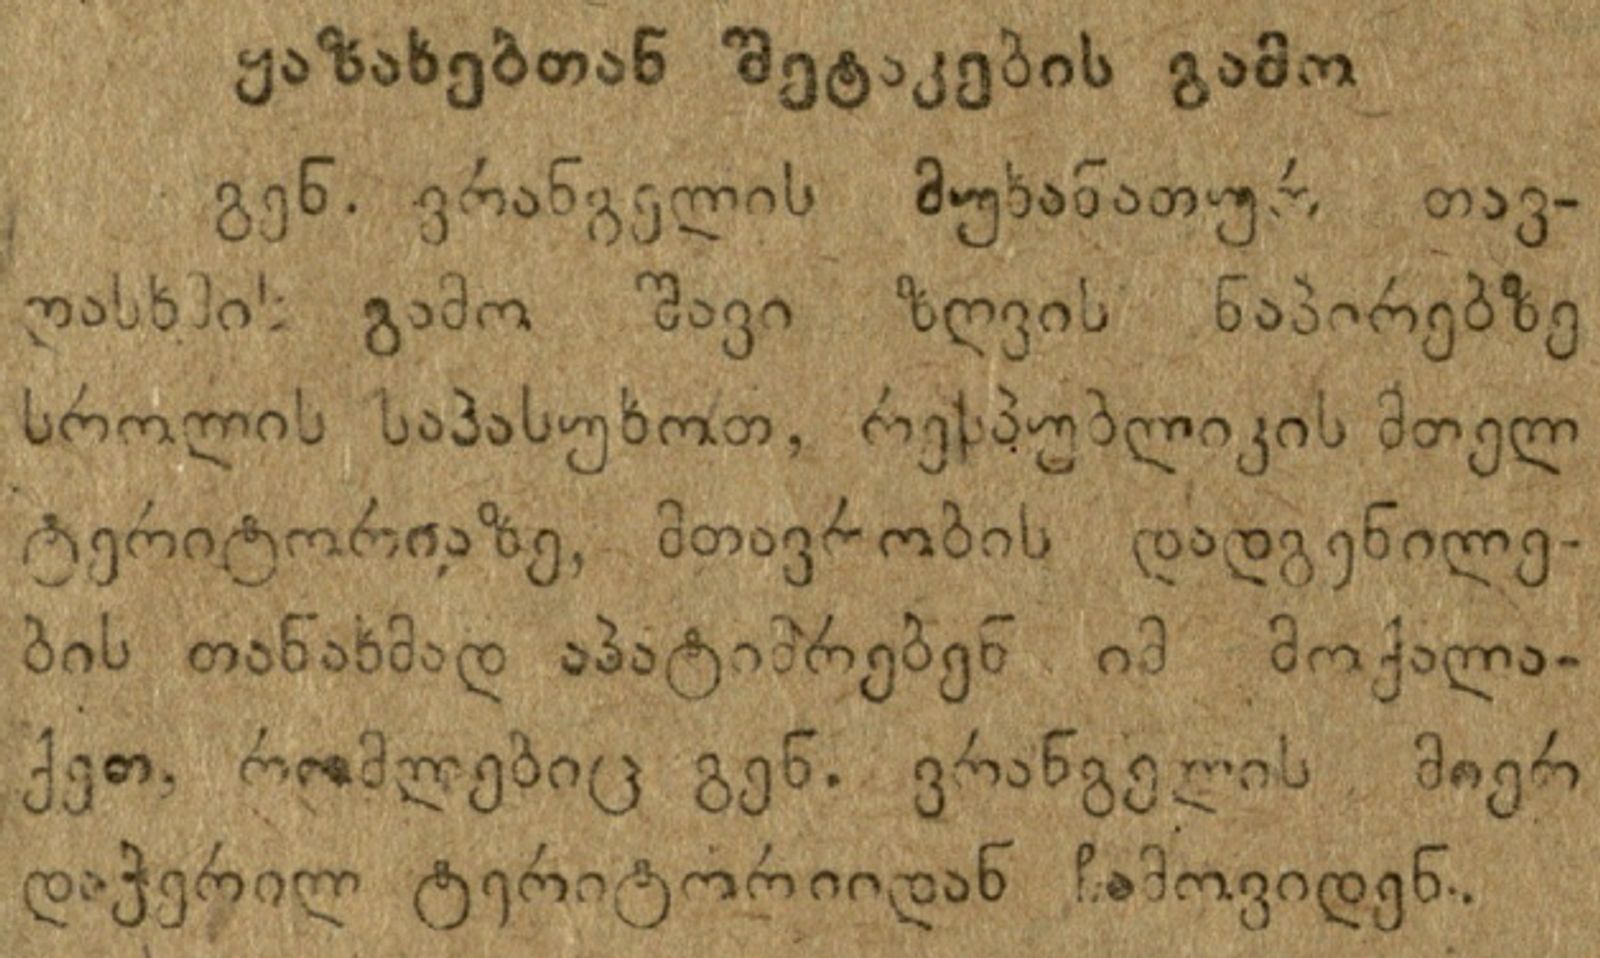 ყაზახებთან შეტაკების გამო
გენ. ვრანგელის მუხანათურ თავ-
დასხმის გამო შავი ზღვის ნაპირებზე
სროლის საპასუხოთ, რესპუბლიკის მთელ
ტერიტორიაზე, მთავრობის დადგენილე-
ბის თანახმად აპატიმრებენ იმ მოქალა-
ქეთ, რომლებიც გენ. ვრანგელის მიერ
დაჭერილ ტერიტორიიდან ჩამოვიდენ.